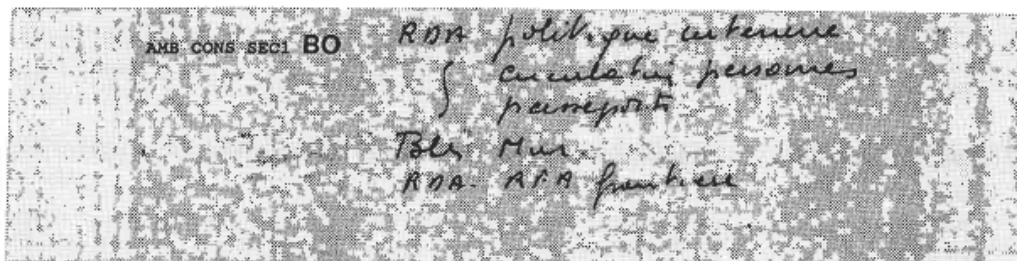 AMB CONS SEC1 BO
RDA politique interieure
circulation personnes
passeports
Bln Mur
RDA. RFA frontiere